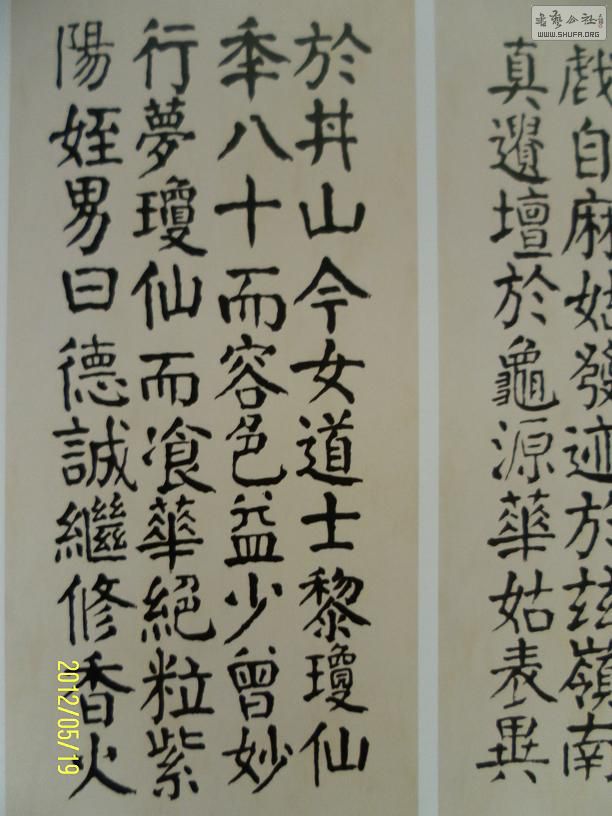 書藝公社
WWW.SHUFA.ORG
戲自麻姑發迹於兹嶺南
真遺壇於龜源華姑表異
於丼山今女道士黎瓊仙
秊八十而容色益少曾妙
行夢瓊仙而飡華絕粒紫
陽姪男曰德誠繼修香火
2012/05/19